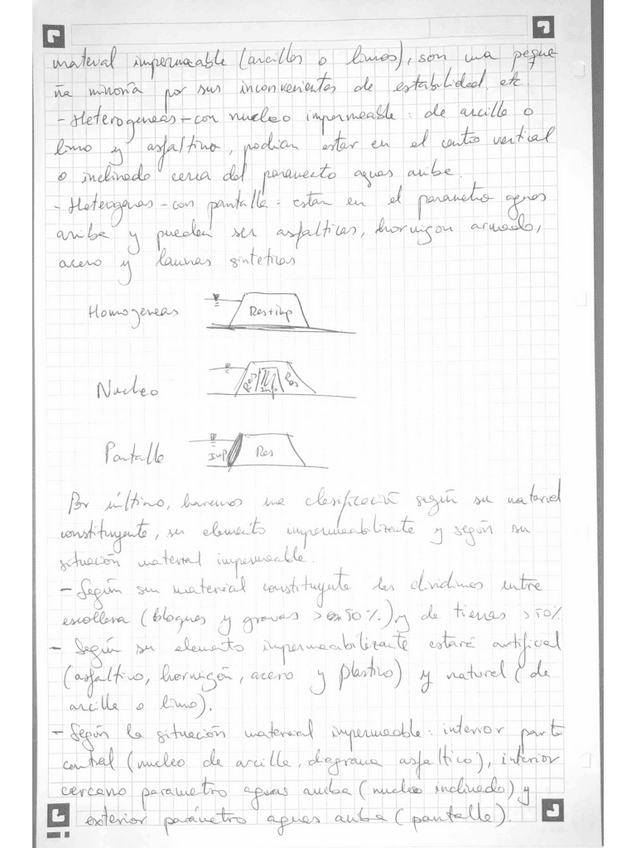 material impermeable (arcillas o limos), son una peque
ña minoría por sus inconvenientes de estabilidad, etc.
- Heterogeneas - con nucleo impermeable: de arcilla o
limo y asfaltino, podian estar en el centro vertical
o inclinado cerca del paramento aguas arriba.
- Heterogeneas - con pantalla: estan en el parametro aguas
arriba y pueden ser asfalticas, hormigon armado,
acero y laminas sinteticas
Homogeneas Res+imp
Nucleo Res Imp Res
Pantalla Imp Res
Por último, haremos una clasificación según su material
constituyente, su elemento impermeabilizante y según su
situación material impermeable.
- Según su material constituyente las dividimos entre
escollera (bloques y gravas > 50%) y de tierras > 50%
- Según su elemento impermeabilizante estará artificial
(asfaltivo, hormigón, acero y plastico) y natural (de
arcilla o limo).
- Según la situación material impermeable: interior parte
central (nucleo de arcilla, diagrama asfaltico), interior
cercano parametro aguas arriba (nucleo inclinado) y
exterior parámetro aguas arriba (pantalla).